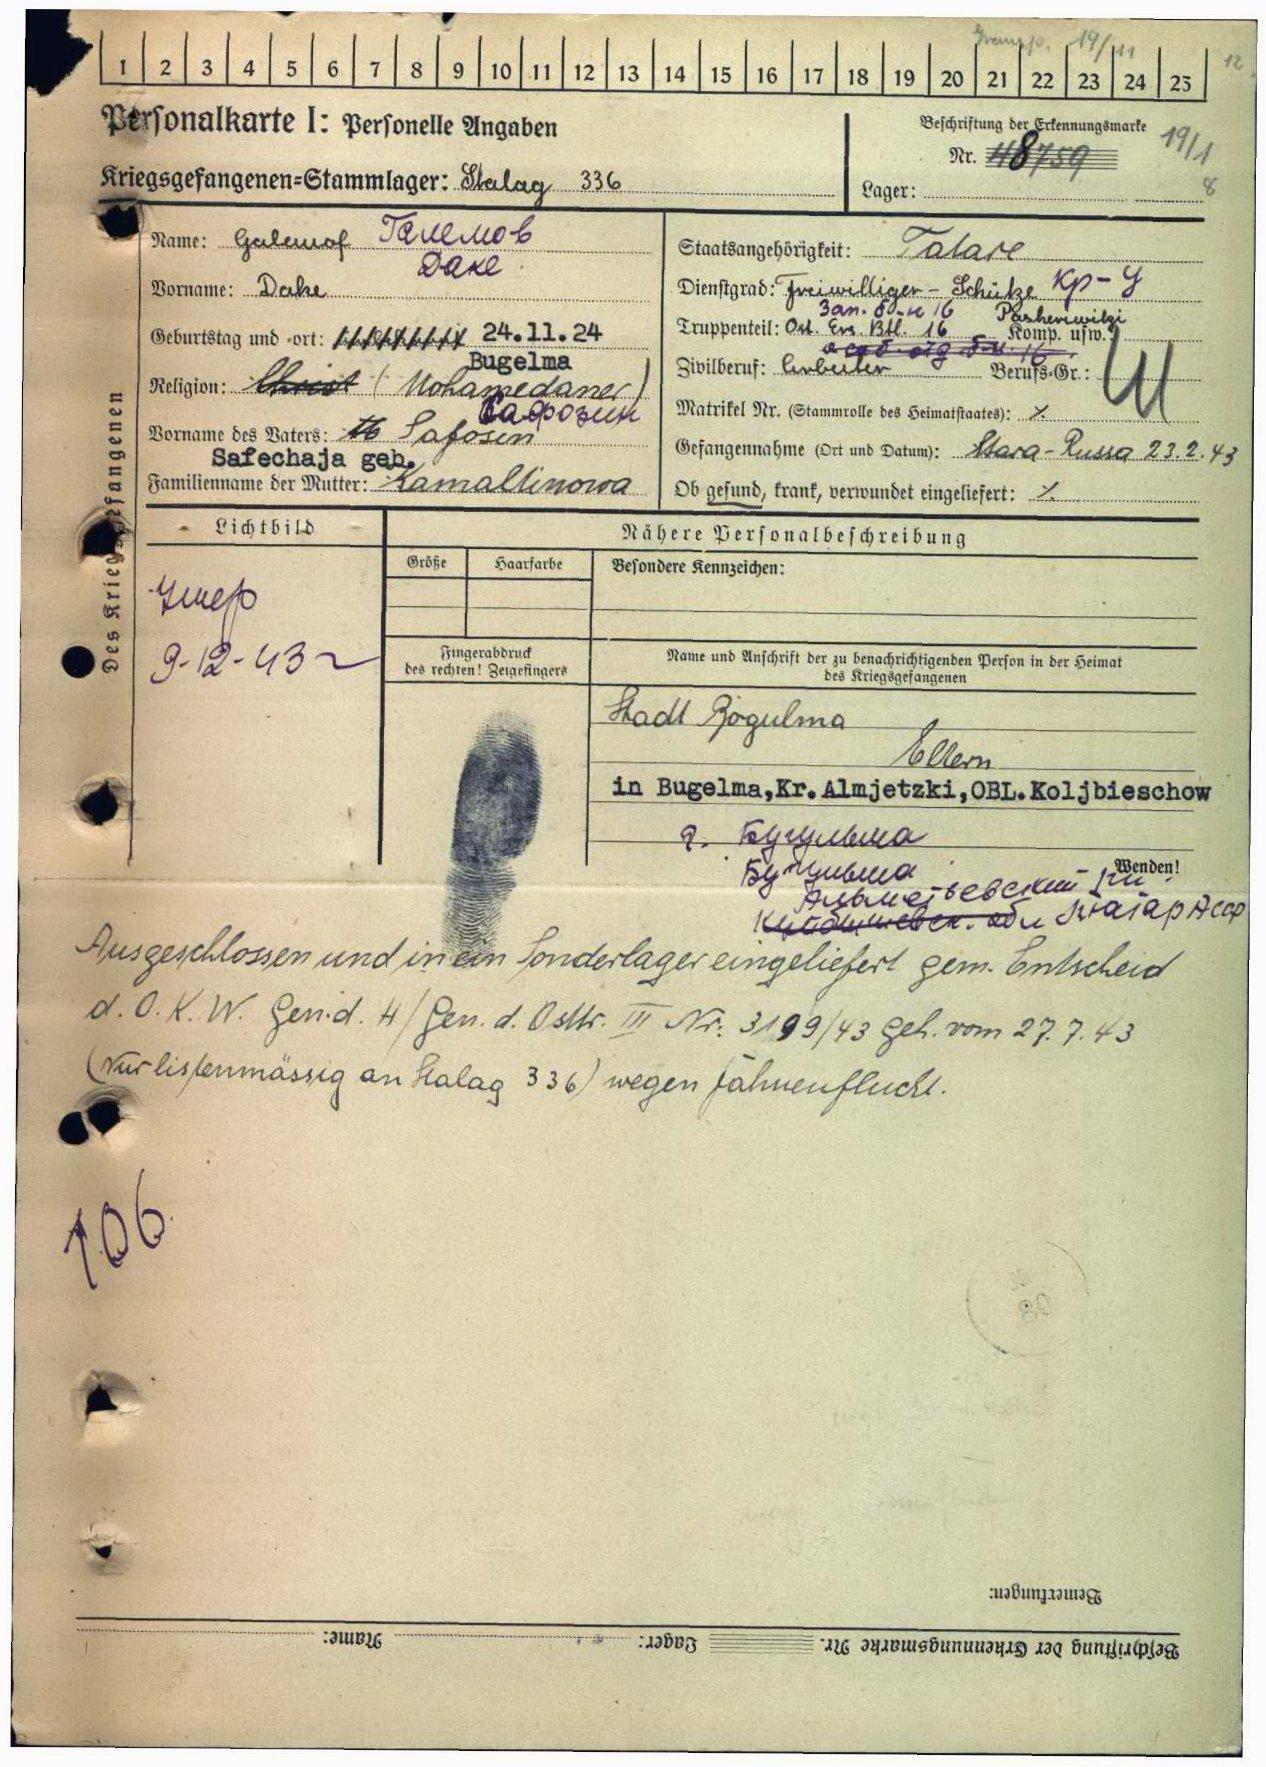 19/11
12
1 2 3 4 5 6 7 8 9 10 11 12 13 14 15 16 17 18 19 20 21 22 23 24 25
Personalkarte I: Personelle Angaben
Beschriftung der Erkennungsmarke
Nr. 48759
19/1
8
Kriegsgefangenen=Stammlager: Stalag 336
Lager:
Des Kriegsgefangenen
Name: Galemof Галемов
Vorname: Dake Даке
Geburtstag und -ort: 24.11.24
Bugelma
Religion: Christ (Mohamedaner)
Сафозин
Vorname des Vaters: Safosin
Safechaja geb.
Familienname der Mutter: Kamaltinowa
Staatsangehörigkeit: Tatare
Dienstgrad: Freiwilliger - Schütze Кр-ц
Зап. б-н 16 
Truppenteil: Ost. Ers. Btl. 16 Komp. usw.:
особ отд б-н 16
Zivilberuf: Arbeiter Berufs-Gr.:
Ш
Matrikel Nr. (Stammrolle des Heimatstaates): ⁒
Gefangennahme (Ort und Datum): Stara-Russa 23.2.43
Ob gesund, krank, verwundet eingeliefert: ⁒
Lichtbild
Умер
9-12-43
Nähere Personalbeschreibung
Größe Haarfarbe Besondere Kennzeichen:
Fingerabdruck
des rechten! Zeigefingers
Name und Anschrift der zu benachrichtigenden Person in der Heimat
des Kriegsgefangenen
Stadt Bogulma
Eltern
in Bugelma,Kr.Almjetzki,OBL.Koljbieschow
г. Бугульма
Wenden!
Бугульма
Альметьевский
Куйбышевск. обл Татар АССР
Ausgeschlossen und in ein Sonderlager eingeliefert gem. Entscheid
d. O. K. W. Gen.d. H/Gen. d. Osttr. III Nr. 3199/43 geh. vom 27.7.43
(Nur listenmässig an Stalag 336) wegen Fahnenflucht.
106
Bemerkungen:
Beschriftung der Erkennungsmarke Nr. Lager: Name: